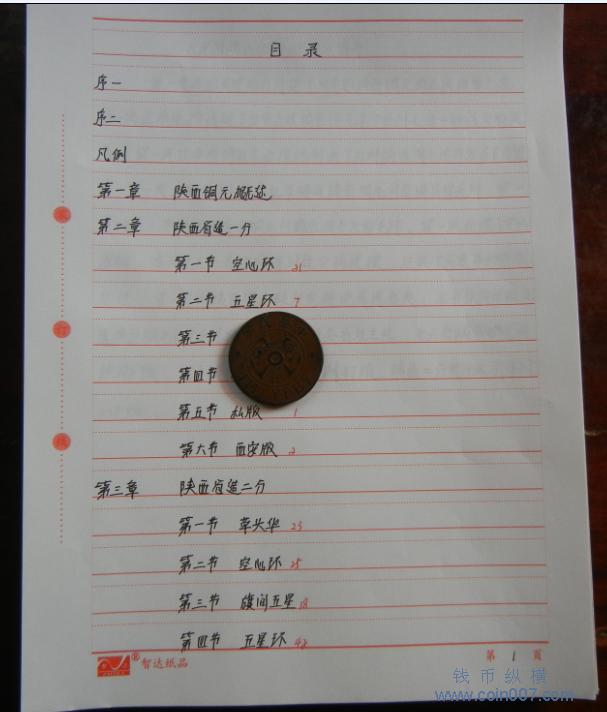 目 录
序一
序二
凡例
第一章 陕西铜元概述
第二章 陕西省造一分
第一节 空心环 21
第二节 五星环 7
第三节
第四节
第五节 私版 1
第六节 西安版 2
第三章 陕西省造二分
第一节 草头华 23
第二节 空心环 25
第三节 旗间五星 18
第四节 五星环 42
装
订
线
智达纸品
第 1 页
钱币纵横
www.coin007.com